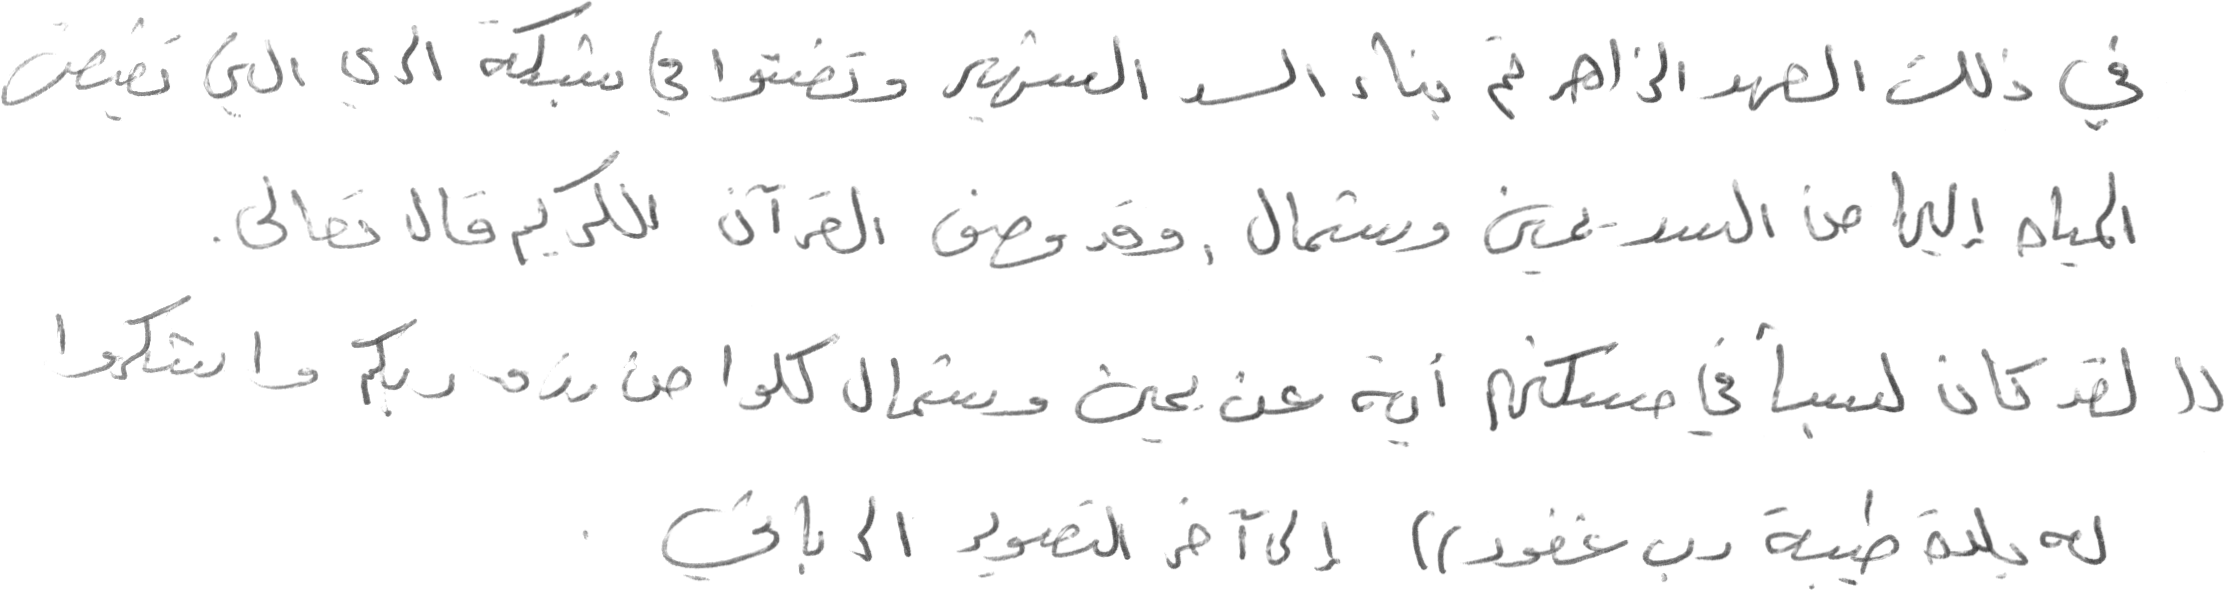 في ذلك العهد الزاهر تم بناء السد الشهير وتفننوا في شبكة الري التي تفيض
المياه إليها من السد يمين وشمال، وقد وصف القرآن الكريم قال تعالى.
(( لقد كان لسبأ في مسكنهم أية عن يمين وشمال كلوا من رزق ربكم واشكروا
له بلدة طيبة رب غفور )) إلى آخر التصوير الرباني .